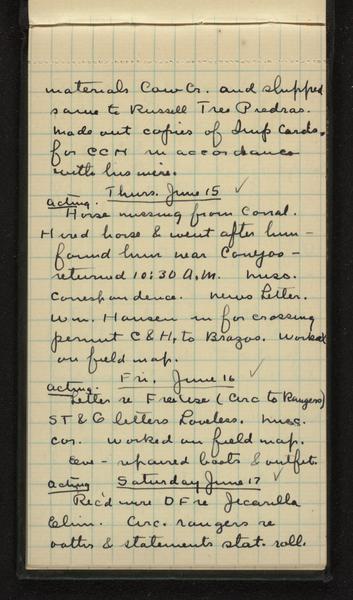 materials Cow Cr. and shipped
same to Russell Tres Piedras.
Made out copies of Imp Cards.
for CCH in accordance
with his wire.
Thurs. June 15 ✓
Acting.
Horse missing from Corral.
Hired horse & went after him –
found him near Conejos –
returned 10:30 A.M. Misc.
Correspondence. News Letter.
Wm. Hansen in for crossing
permit C & H, to Brazos. Worked
on field map.
Acting. Fri. June 16 ✓
Letter re Free Use (Circ to Rangers)
ST & G letters Loveless. Misc.
cor. Worked on field map.
Eve – repaired boots & outfit.
Acting Saturday June 17 ✓
Rec'd wire DF re Jicarilla
Elim. Circ. rangers re
oaths & statements stat. roll.